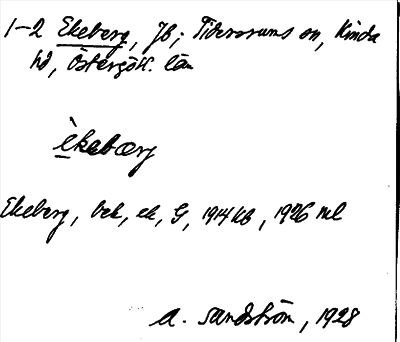 1-2 Ekeberg, JB; Tidersrums sn, Kinda
hd, Östergötl. län
èkabærg
Ekeberg, bek, ek, G, 1914 kb, 1926 ml
A. Sandström, 1928